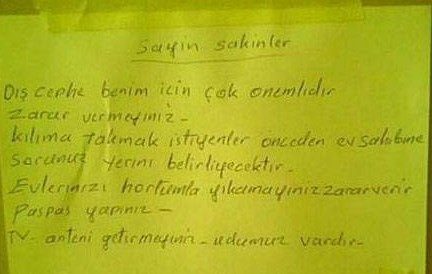 sayın sakinler
Dış cephe benim için çok onemlidir
Zarar vermeyiniz -
kılıma takmak istiyenler onceden ev sahibine
sorunuz yerini belirliyecektir -
Evlerinizi hortumla yıkamayiniz zarar verir
Paspas yapınız -
TV - anteni getirmeyiniz - udumuz vardır -